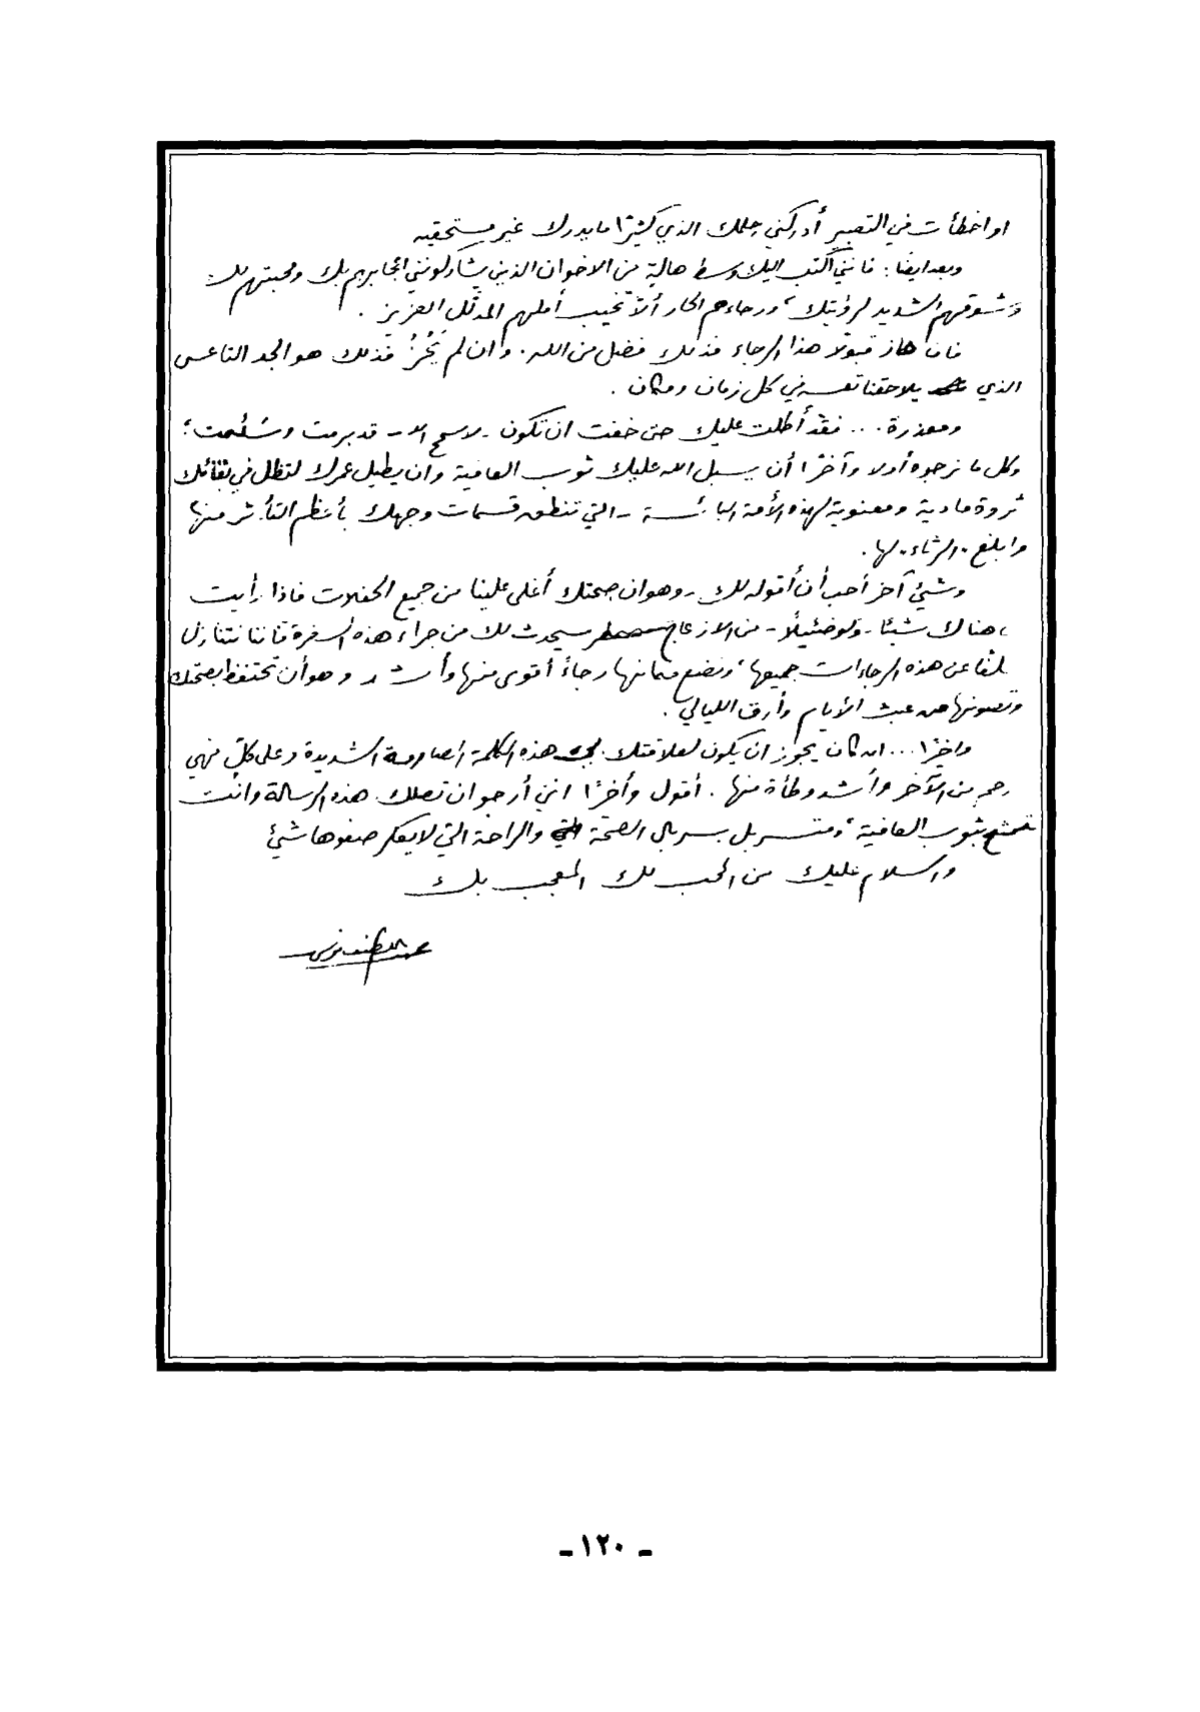 او اخطأت في التعبير أدركني حلمك الذي كثيرًا ما يدرك غير مستحقيه
وبعد ايضا: فانني اكتب اليك وسط هالة من الاخوان الذين يشاركونني اعجابهم بك ومحبتهم لك
وشوقهم الشديد لرؤيتك، ورجاءهم الحار ألا تخيب أملهم المدلل العزيز.
فان حاز قبولا هذا الرجاء فذلك فضل من الله. وان لم يَحُزْ فذلك هو الجد التاعس
الذي يلاحقنا تعسه في كل زمان ومكان.
ومعذرة... فقد أطلت عليك حتى خفت ان تكون - لا سمح الله - قد برمت وسئمت؛
وكل ما نرجوه أولا وآخرًا أن يسبل الله عليك ثوب العافية وان يطيل عمرك لتظل في بقائك
ثروة مادية ومعنوية لهذه الأمة البائسة - التي تنطق قسمات وجهك بأعظم التأثر منها
وابلغ الرثاء لها.
وشيئ آخر أحب أن أقوله لك - وهو ان صحتك أغلى علينا من جميع الحفلات فاذا رأيت
هناك شيئا - ولو ضئيلاً - من الازعاج سيحدث لك من جراء هذه السفرة فاننا نتنازل
لك عن هذه الرجاءات جميعها، ونضع مكانها رجاءً أقوى منها وأشد وهو أن تحتفظ بصحتك
وتصونها من عبث الأيام وأرق الليالي.
واخيرًا... ان كان يجوز ان يكون لعلاقتك هذه الكلمة الصارمة الشديدة وعلى كلٍ فهي
ارحم من الآخر وأشد وطأة منها. أقول وأخيرًا انني أرجو ان تصلك هذه الرسالة وانت
تتمتع بثوب العافية، ومتسربل بسربال الصحة والراحة التي لا يعكر صفوها شيئ
والسلام عليك من المحب لك المعجب بك
- ١٢٠ -